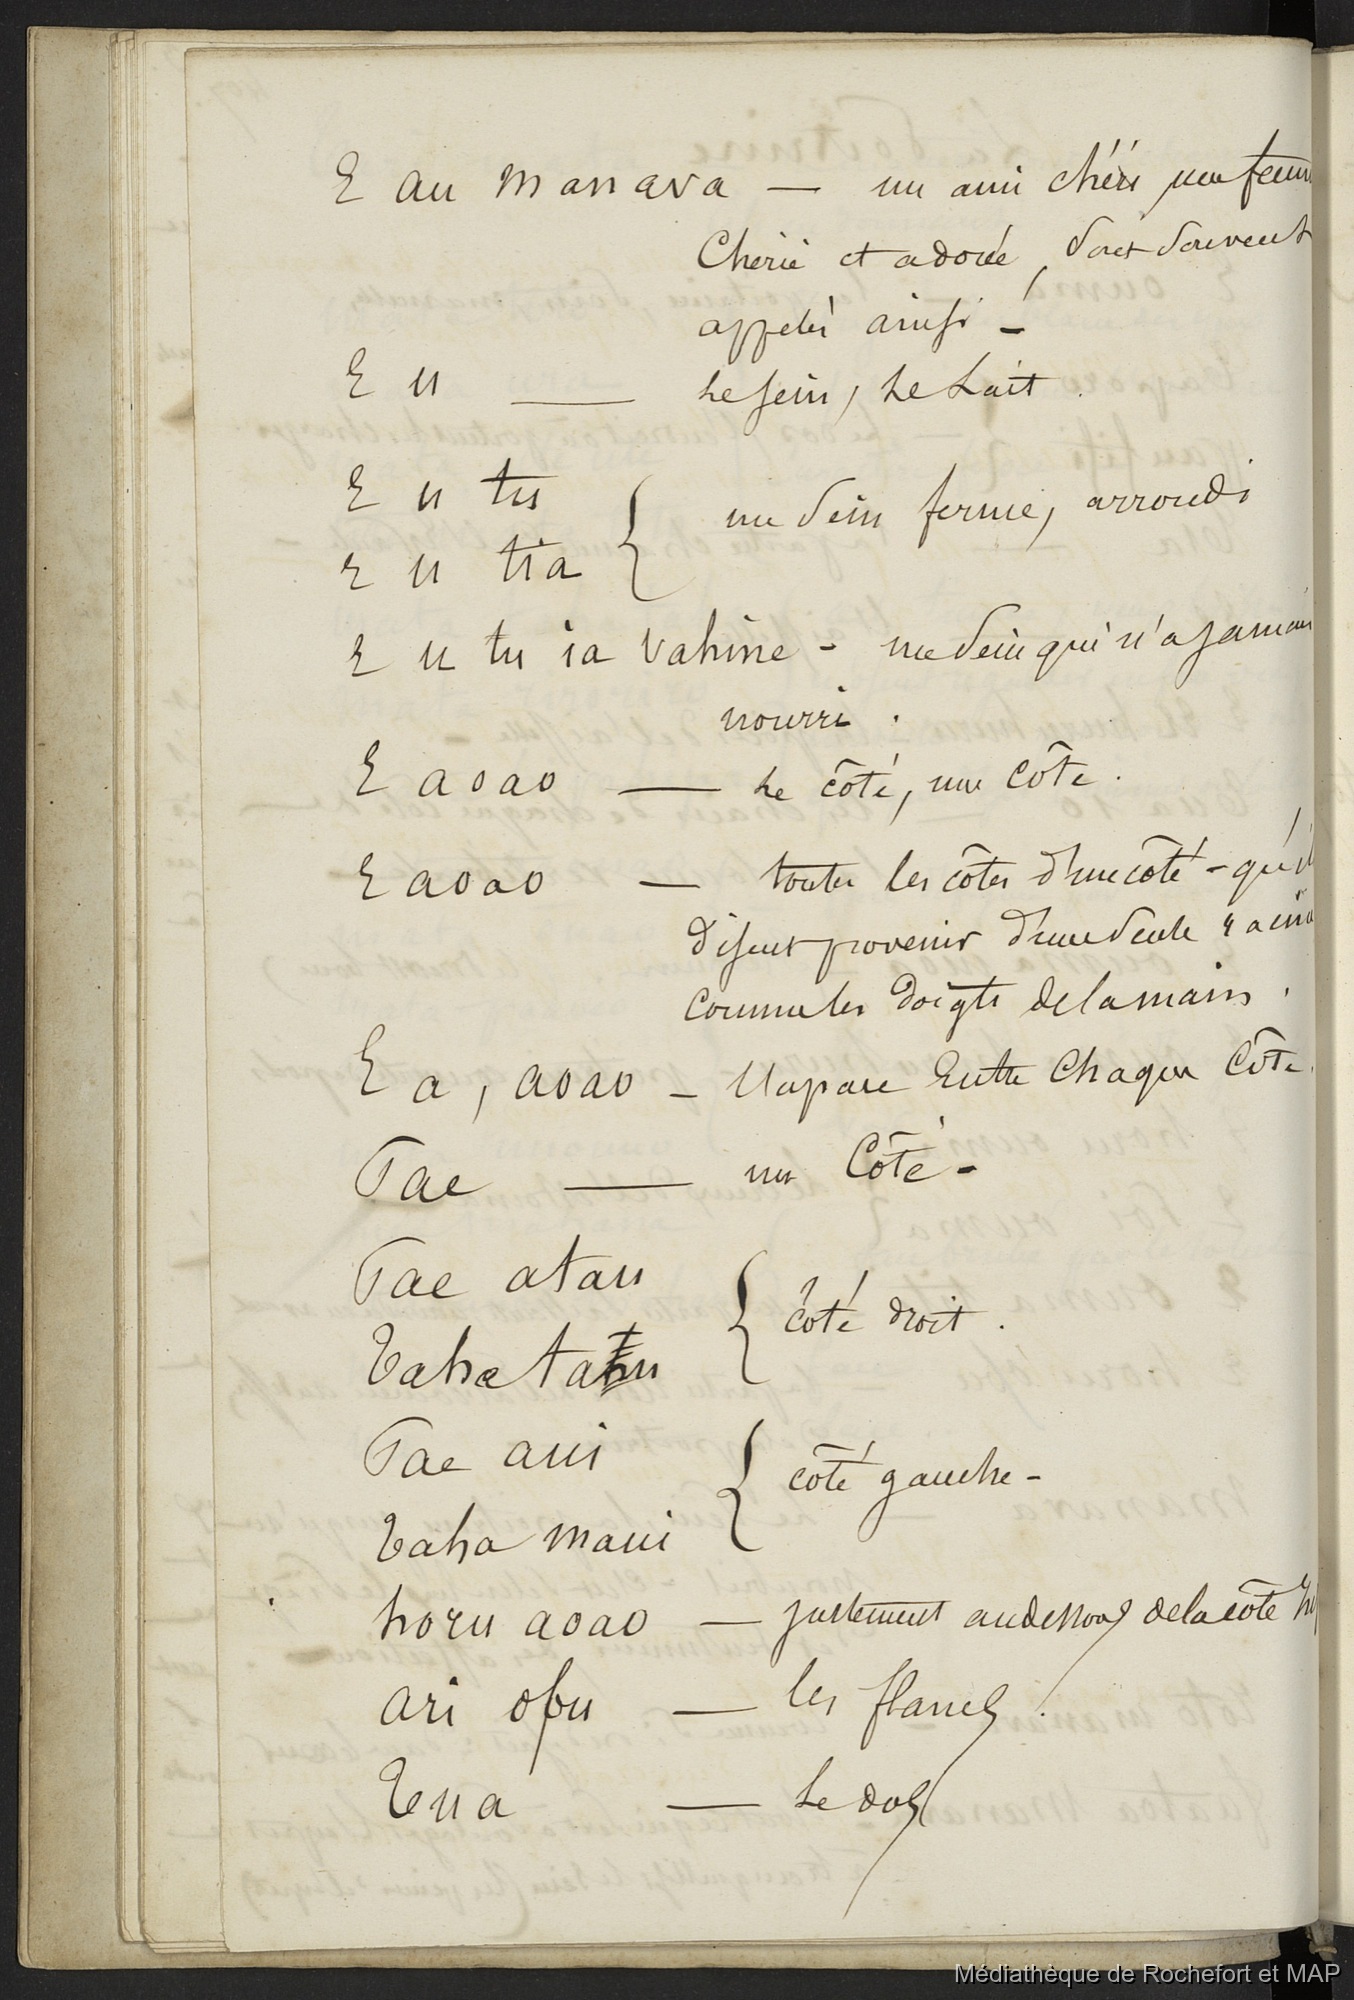 E au manava — un ami chéri, une femm
chérie et adorée, sont souvent
appelés ainsi —
E u — Le sein, Le Lait.
E u tu
E u tia { un sein ferme, arrondi
E u tu ia vahine - un sein qui n'a jamais
nourri.
E aoao — Le côté, une côte.
E aoao — toutes les côtes d'un côté - qu'il
disent provenir d'une seule racin
comme les doigts de la main.
E a, aoao — l'espace Entre chaque Côte.
Tae — un Côté -
Tae atau
Taha tatau { côté droit.
Tae aui
Taha maui { côté gauche -
horu aoao — justement au dessous de la côte
ari ofu — les flancs.
Tua — Le dos
Médiathèque de Rochefort et MAP